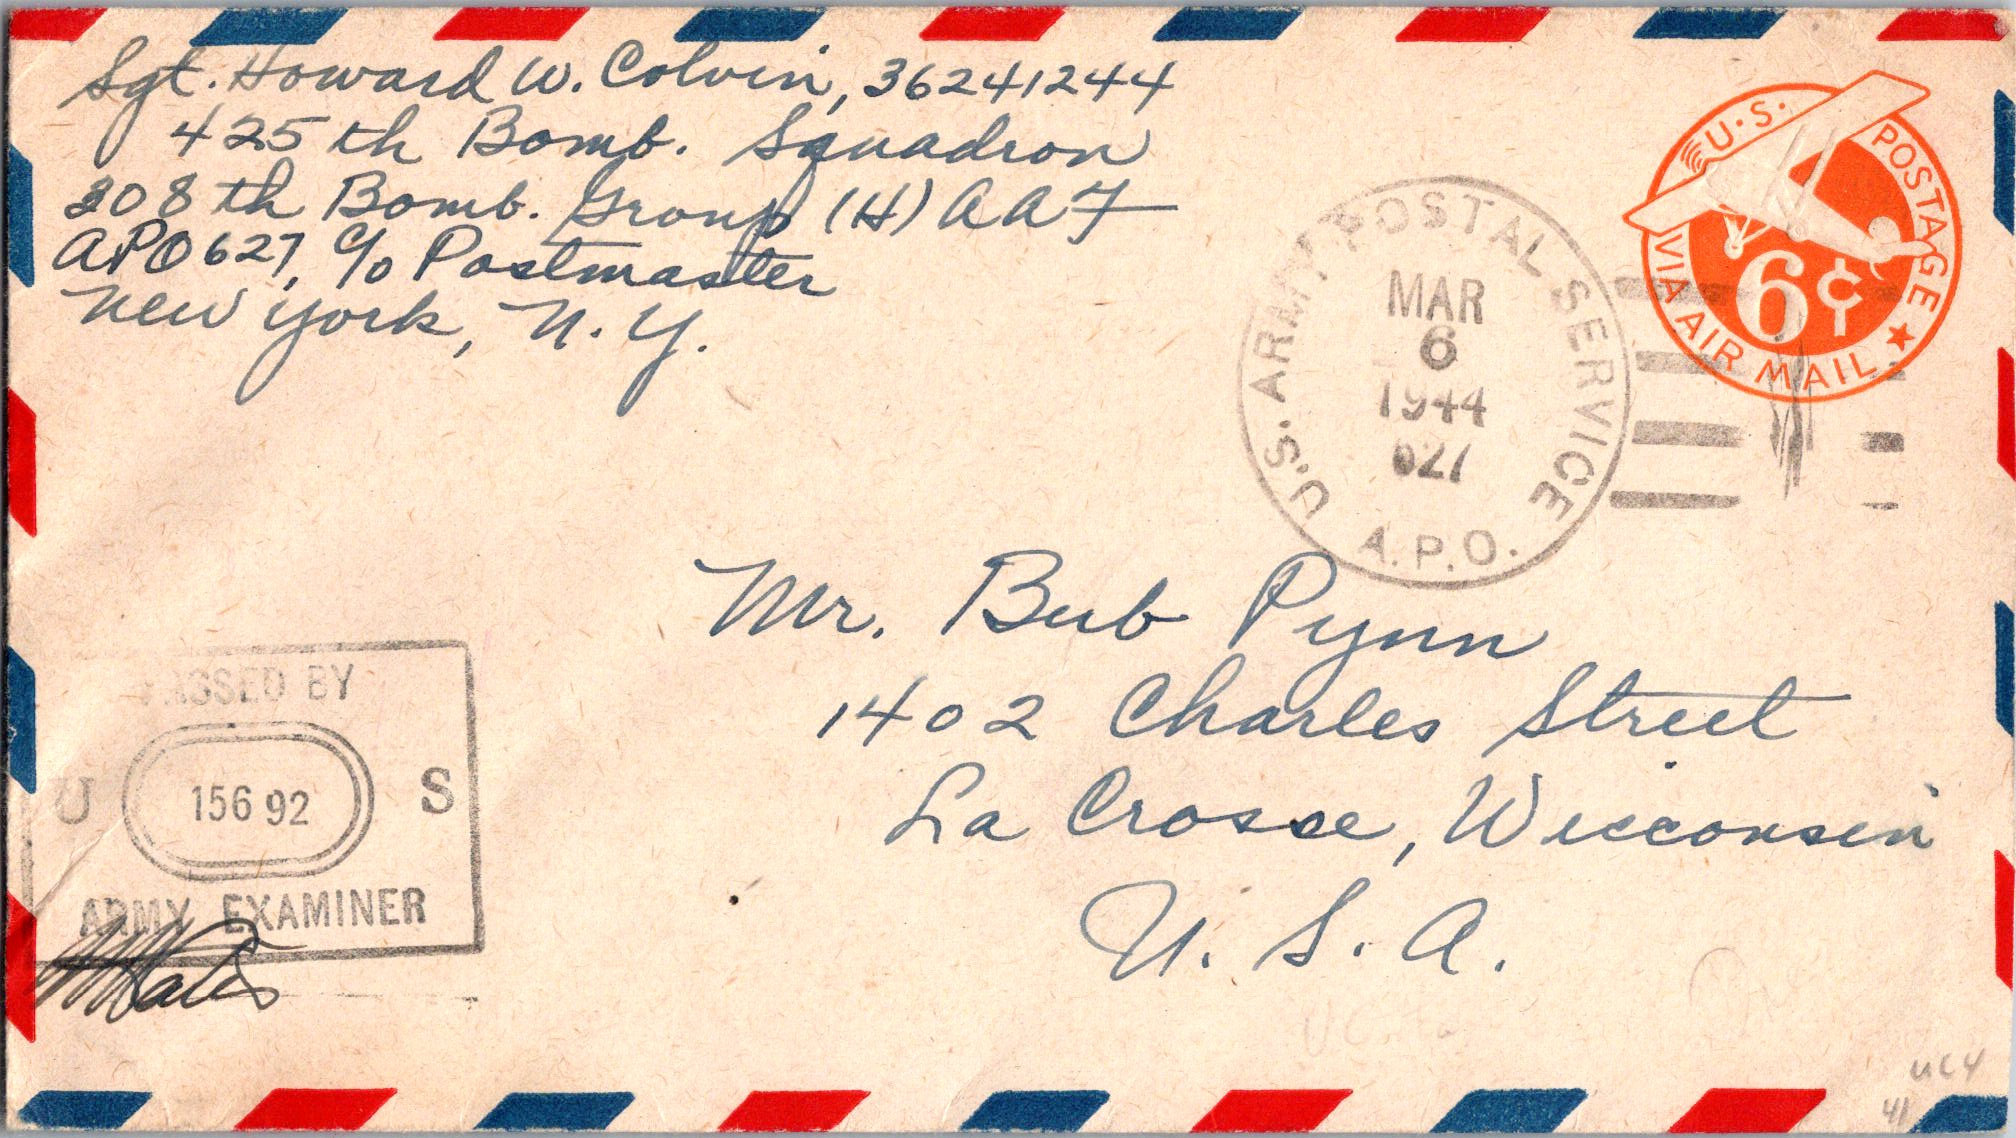 Sgt. Howard W. Colvin, 36241244
425th Bomb. Squadron
308th Bomb. Group (H) AAF
APO 627, c/o Postmaster
New York, N.Y.
U.S. POSTAGE
VIA AIR MAIL
6¢
U.S. ARMY POSTAL SERVICE
MAR
6
1944
627
A.P.O.
Mr. Bub Pynn
1402 Charles Street
La Crosse, Wisconsin
U.S.A.
PASSED BY
U 15692 S
ARMY EXAMINER
UC4
41